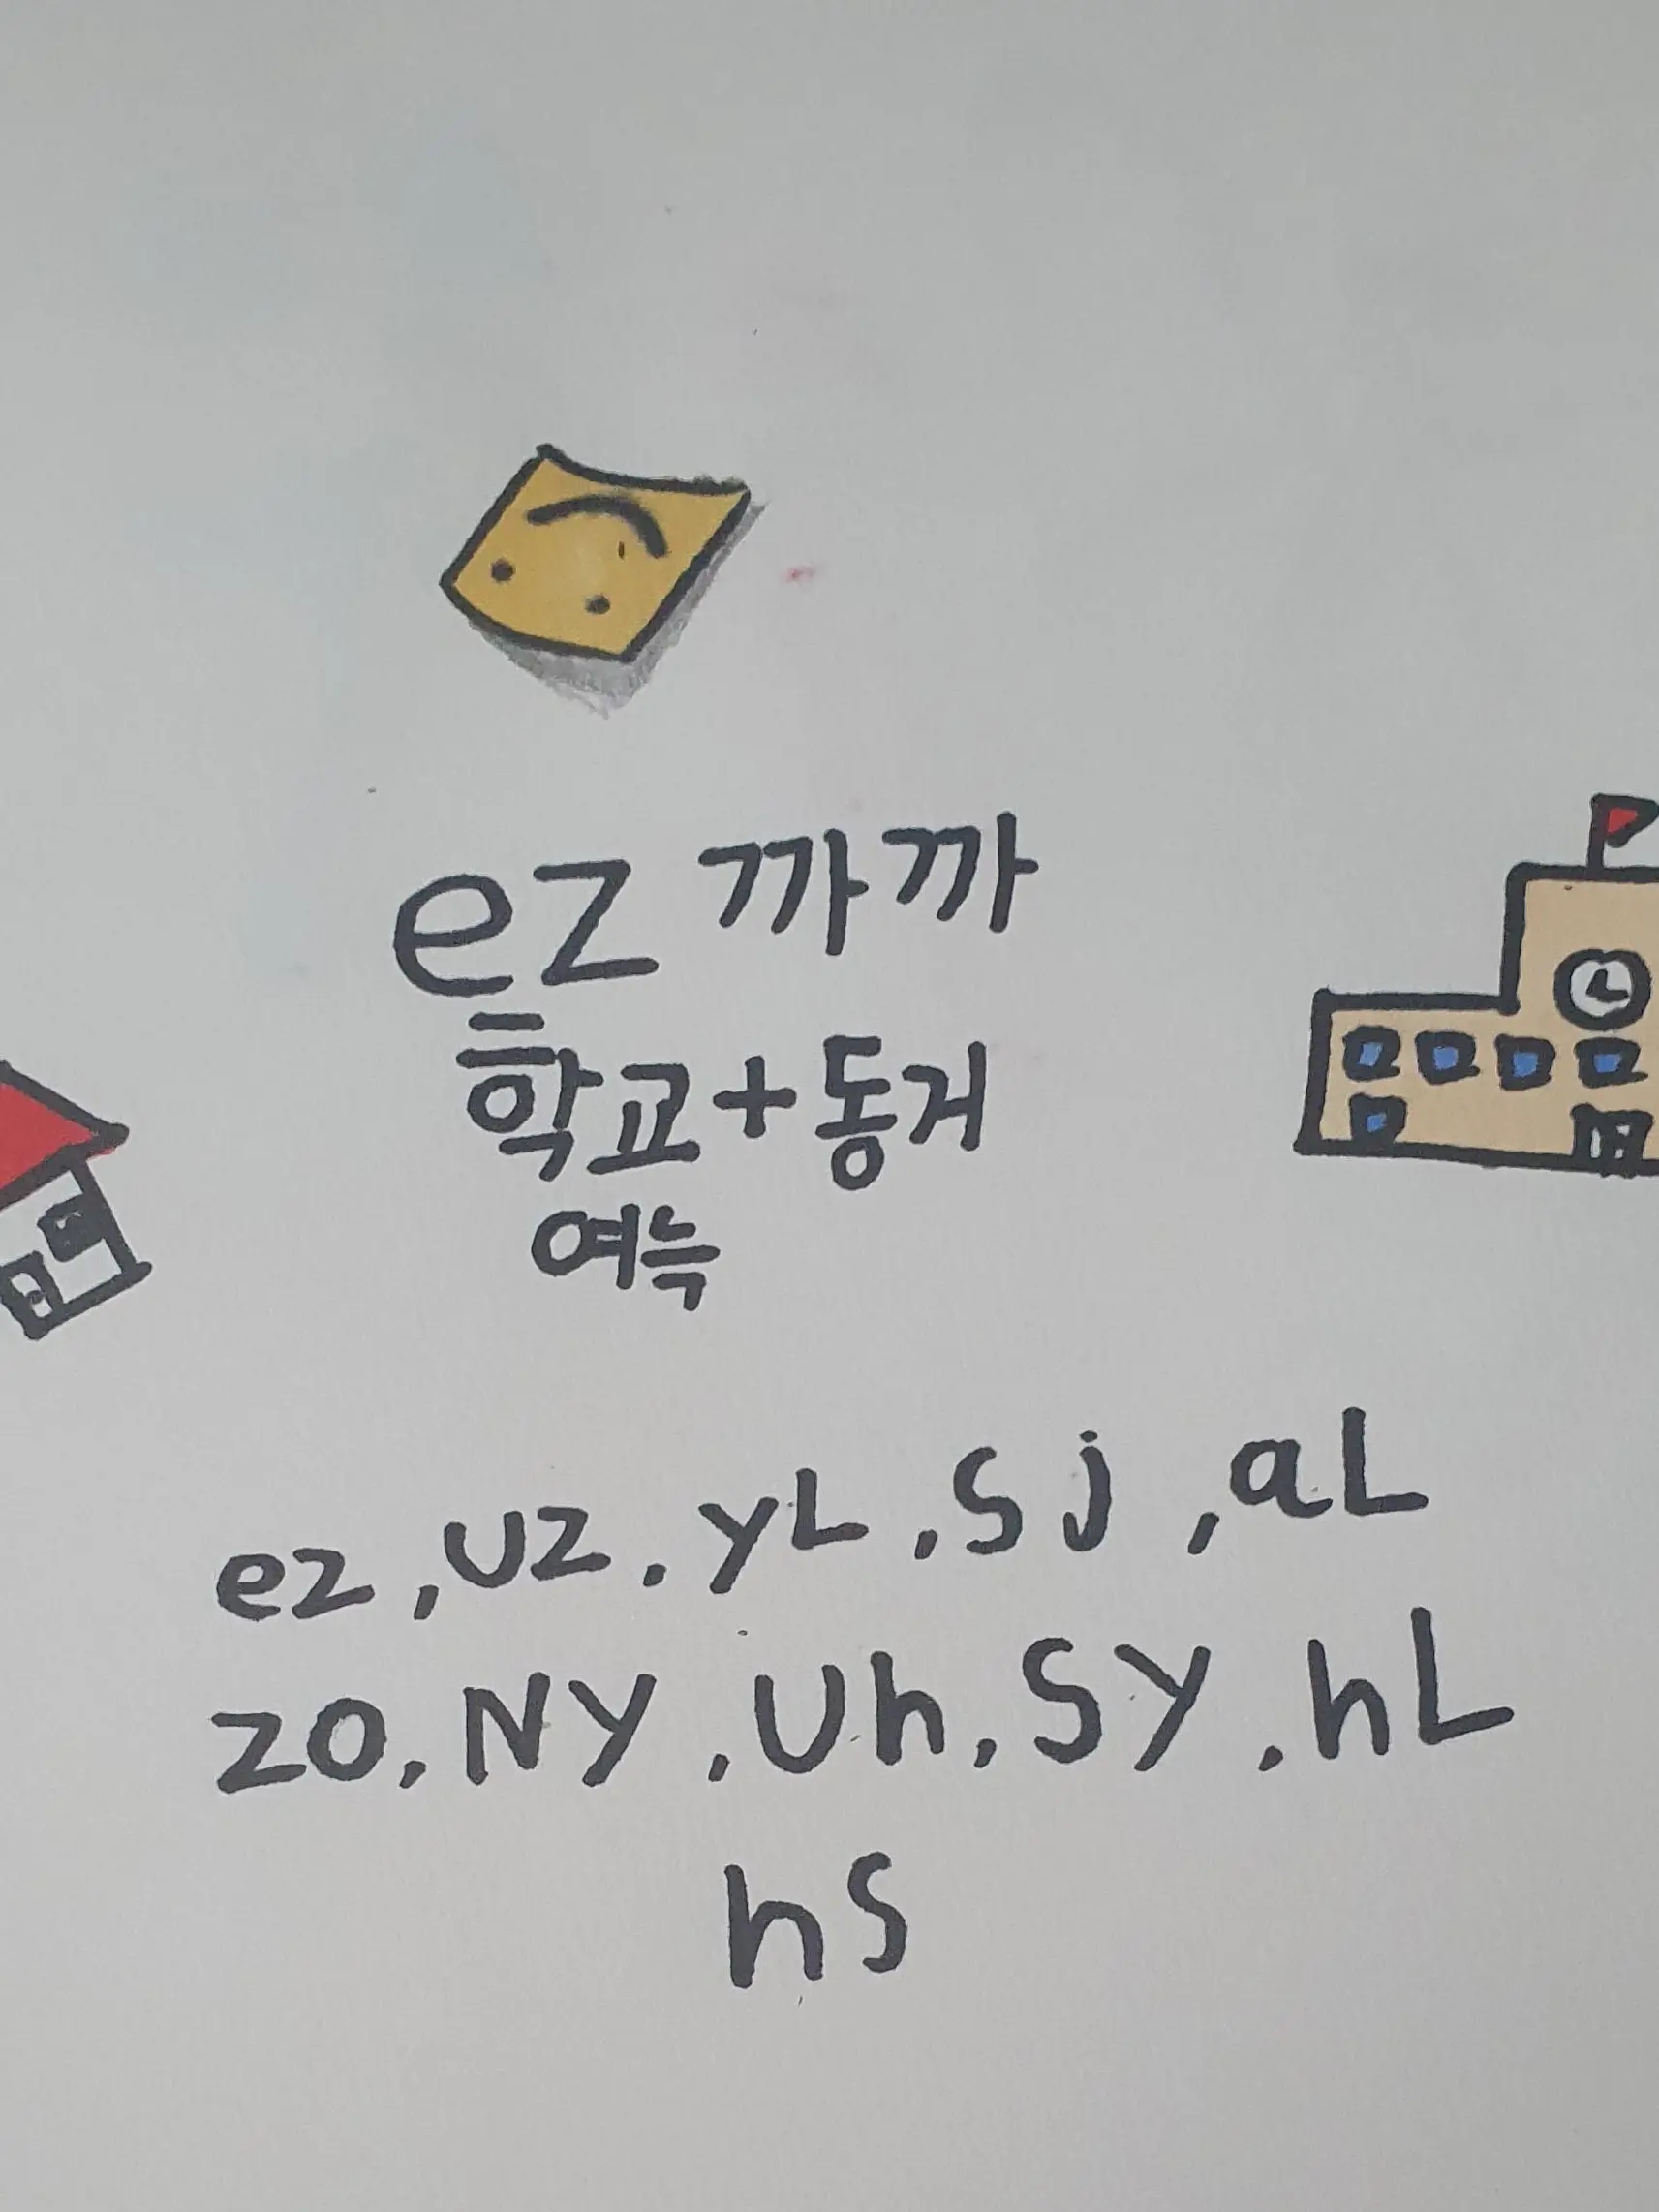 ez 까까
학교+동거
여늑
ez, Uz, yL, Sj, aL
zo, NY, Uh, SY, hL
hS